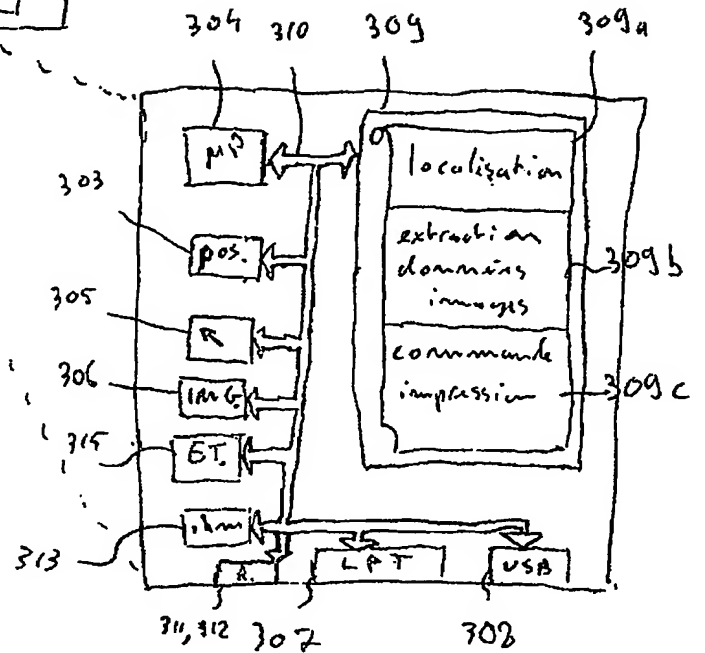 304 310 309 309a
µP
localisation
303
pos.
extraction
données
images
309b
305
R
commande
impression
309c
306
IMG.
315
ET.
ihm
313
R.
LPT
USB
311, 312 307 308